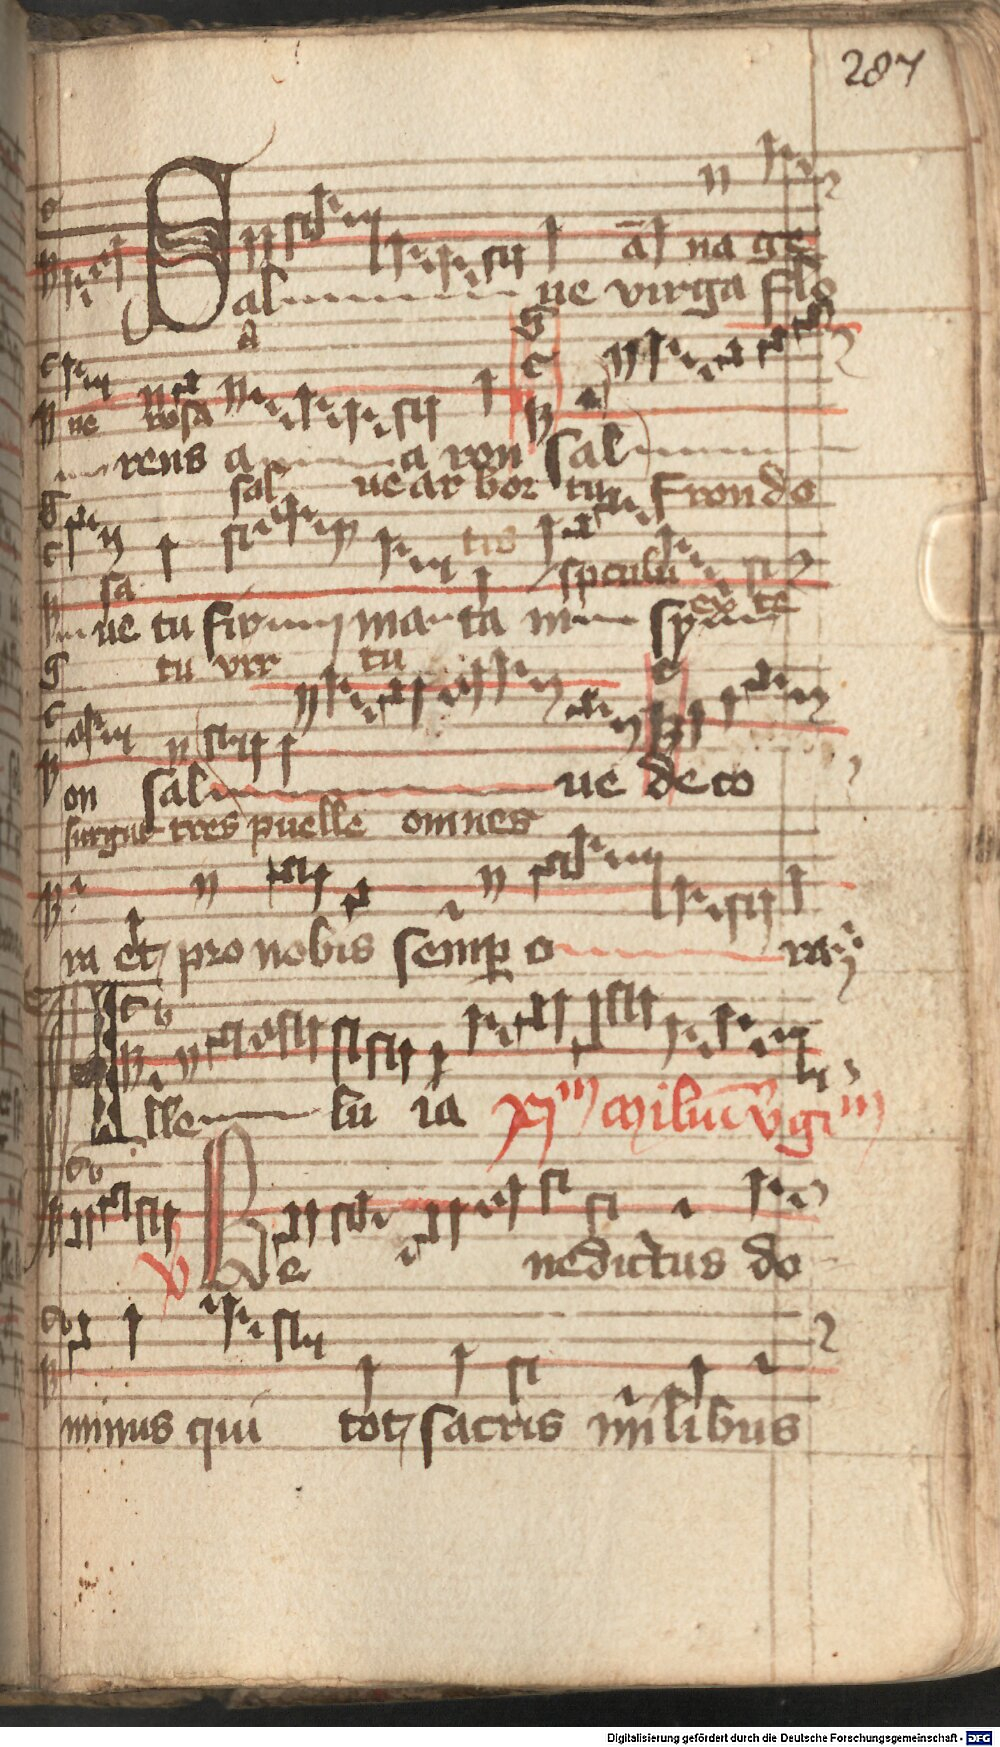 287
āl na ge
Sal ue virga flo
ne rosa
rens a a ron Sal
sal ue ar bor tu frondo
sa speculū
ue tu fir ma ta
ex te
tu vir tu
on Sal ue deco
surgūt tres puelle omnes
ra et pro nobis semp o ra
Alle lu ia XI m milium v̄gi m
V Be nedictus do
minus qui tot sacris milibus
Digitalisierung gefördert durch die Deutsche Forschungsgemeinschaft - DFG